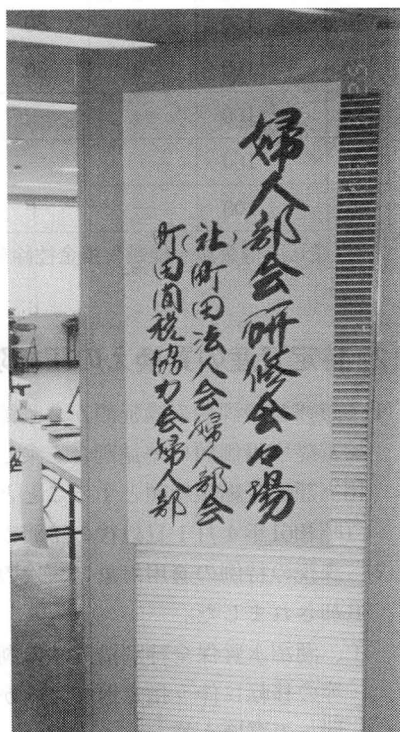 婦人部会研修会々場
(社)町田法人会婦人部会
町田間税協力会婦人部